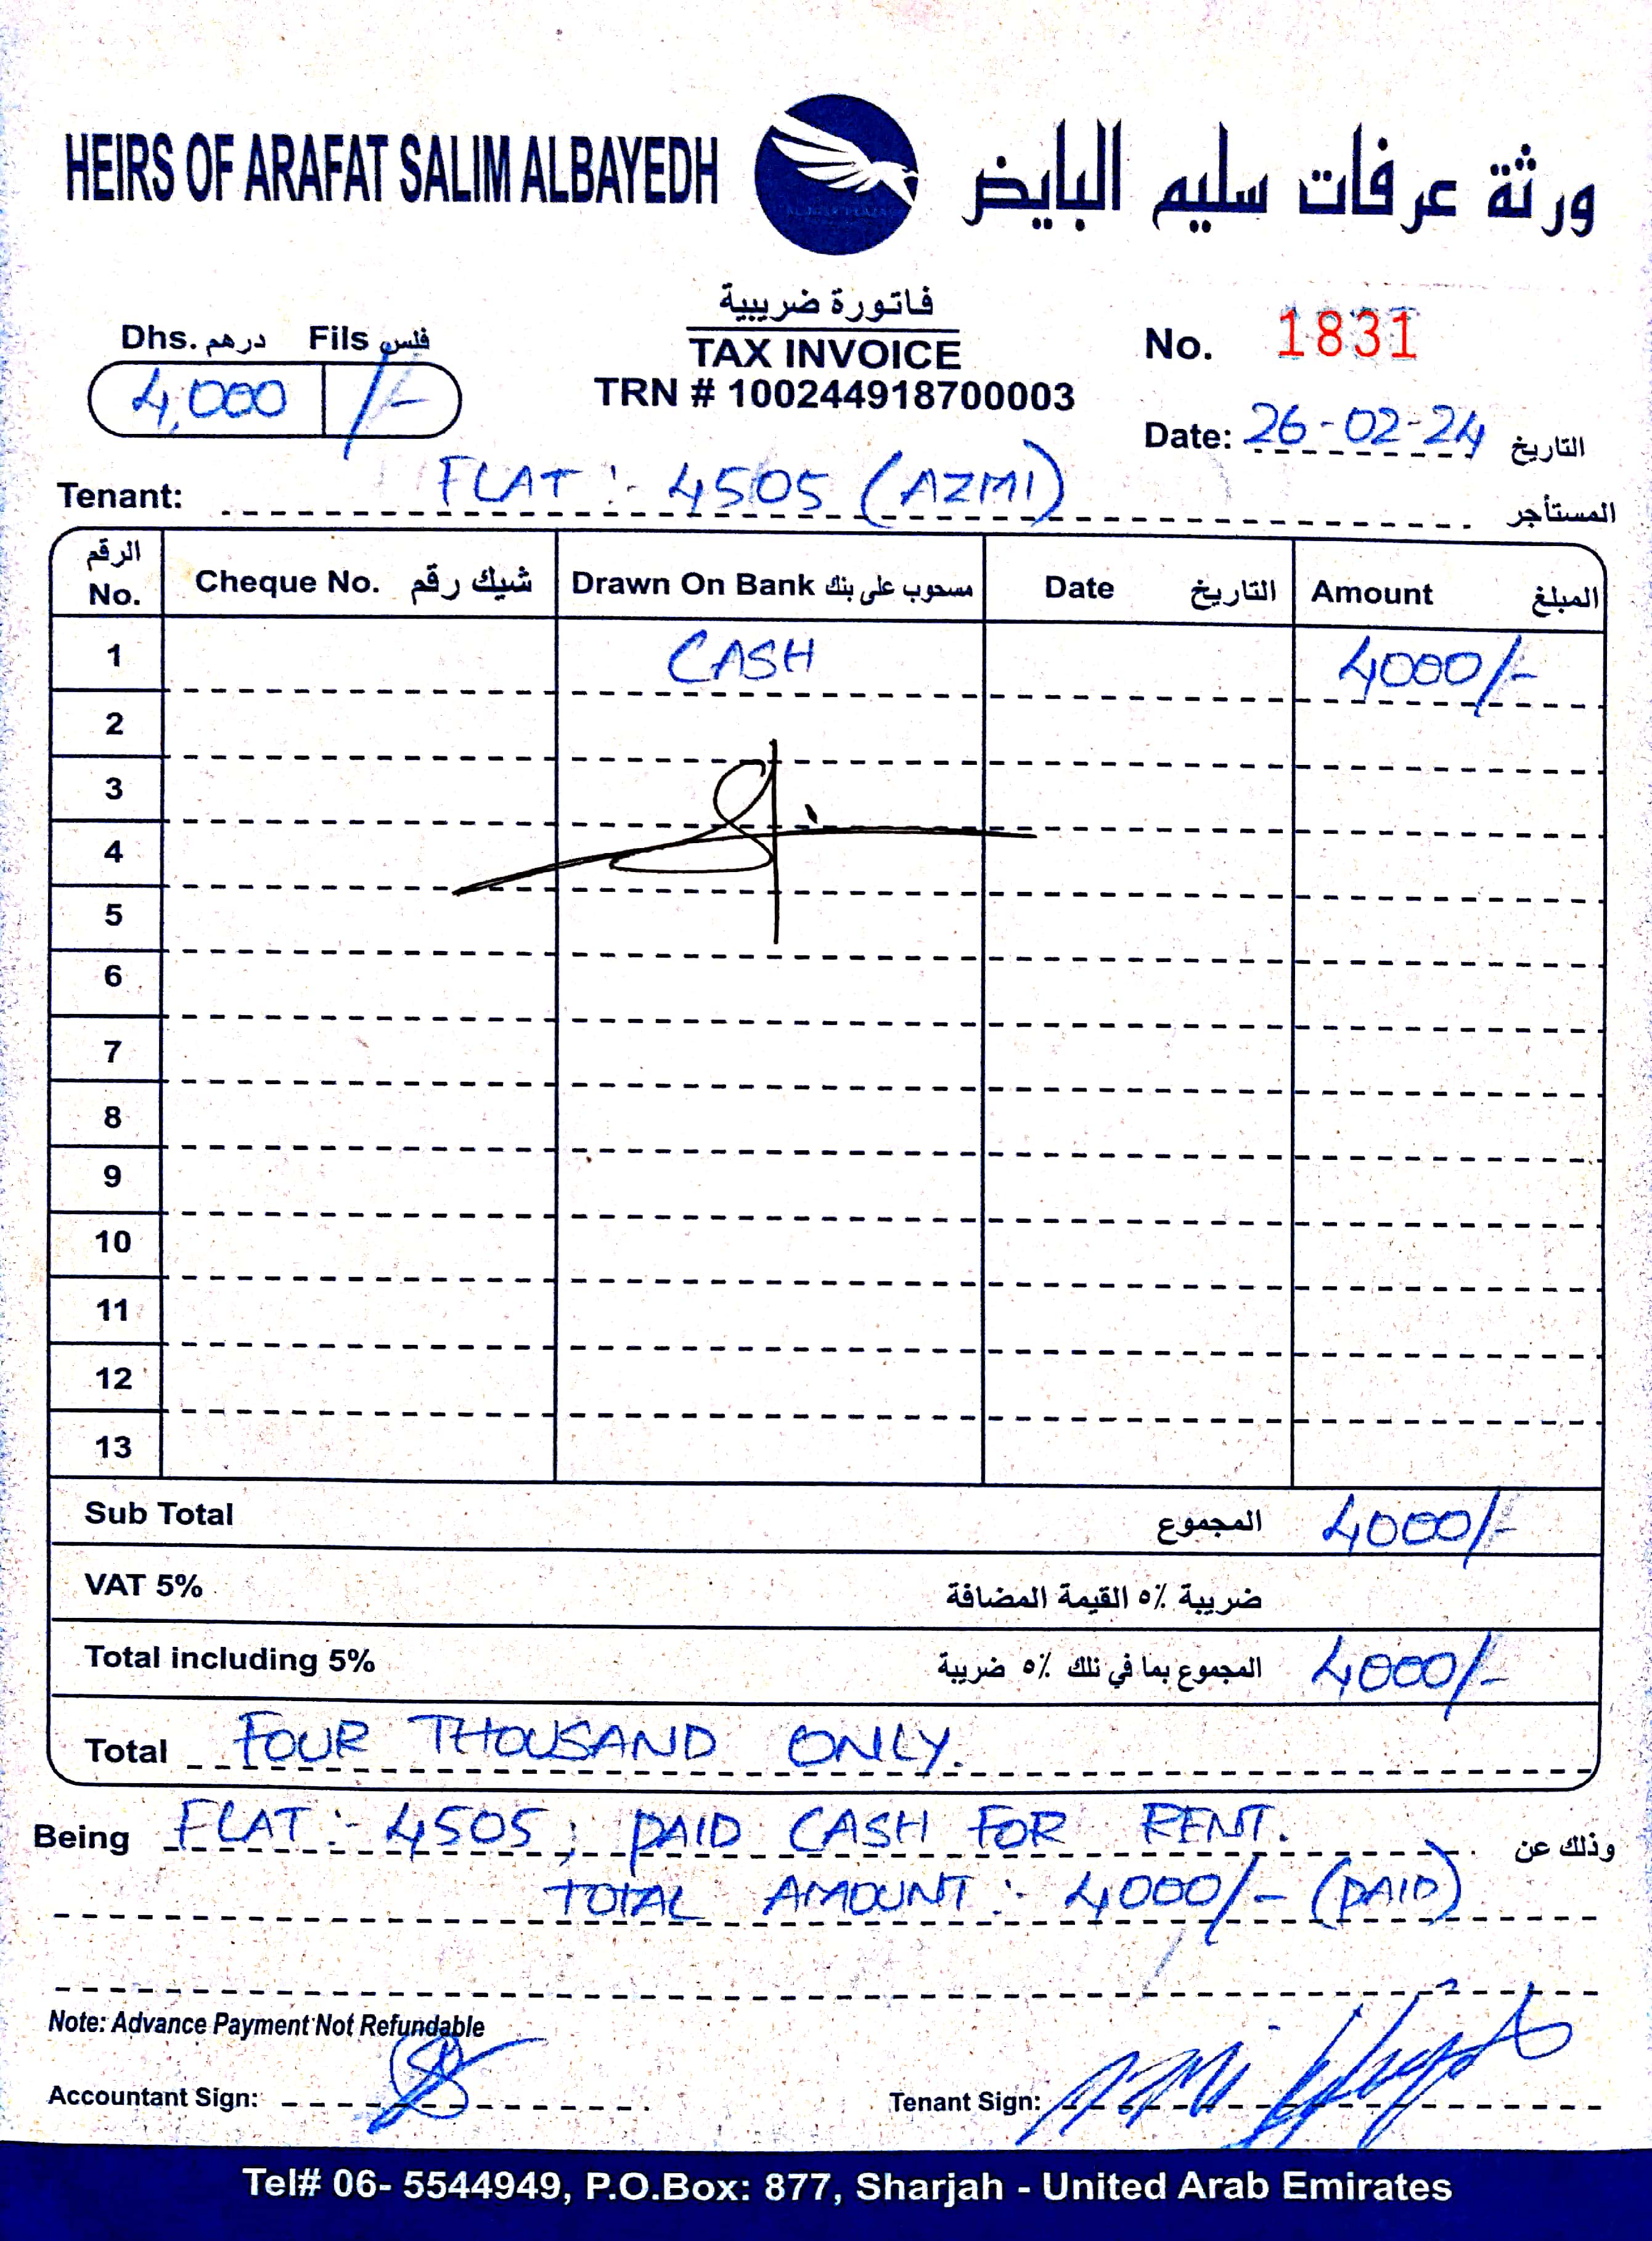 HEIRS OF ARAFAT SALIM ALBAYEDH
ورثة عرفات سليم البايض
فاتورة ضريبية
TAX INVOICE
TRN # 100244918700003
Dhs. درهم Fils فلس
4,000 /-
No. 1831
Date: 26-02-24 التاريخ
Tenant: FLAT :- 4505 (AZMI) المستأجر
الرقم No. Cheque No. شيك رقم Drawn On Bank مسحوب على بنك Date التاريخ Amount المبلغ
1 CASH 4000/-
2
3
4
5
6
7
8
9
10
11
12
13
Sub Total المجموع 4000/-
VAT 5% ضريبة ٥٪ القيمة المضافة
Total including 5% المجموع بما في تلك ٥٪ ضريبة 4000/-
Total FOUR THOUSAND ONLY.
Being FLAT :- 4505; PAID CASH FOR RENT. وذلك عن
TOTAL AMOUNT :- 4000/- (PAID)
Note: Advance Payment Not Refundable
Accountant Sign:
Tenant Sign:
Tel# 06- 5544949, P.O.Box: 877, Sharjah - United Arab Emirates